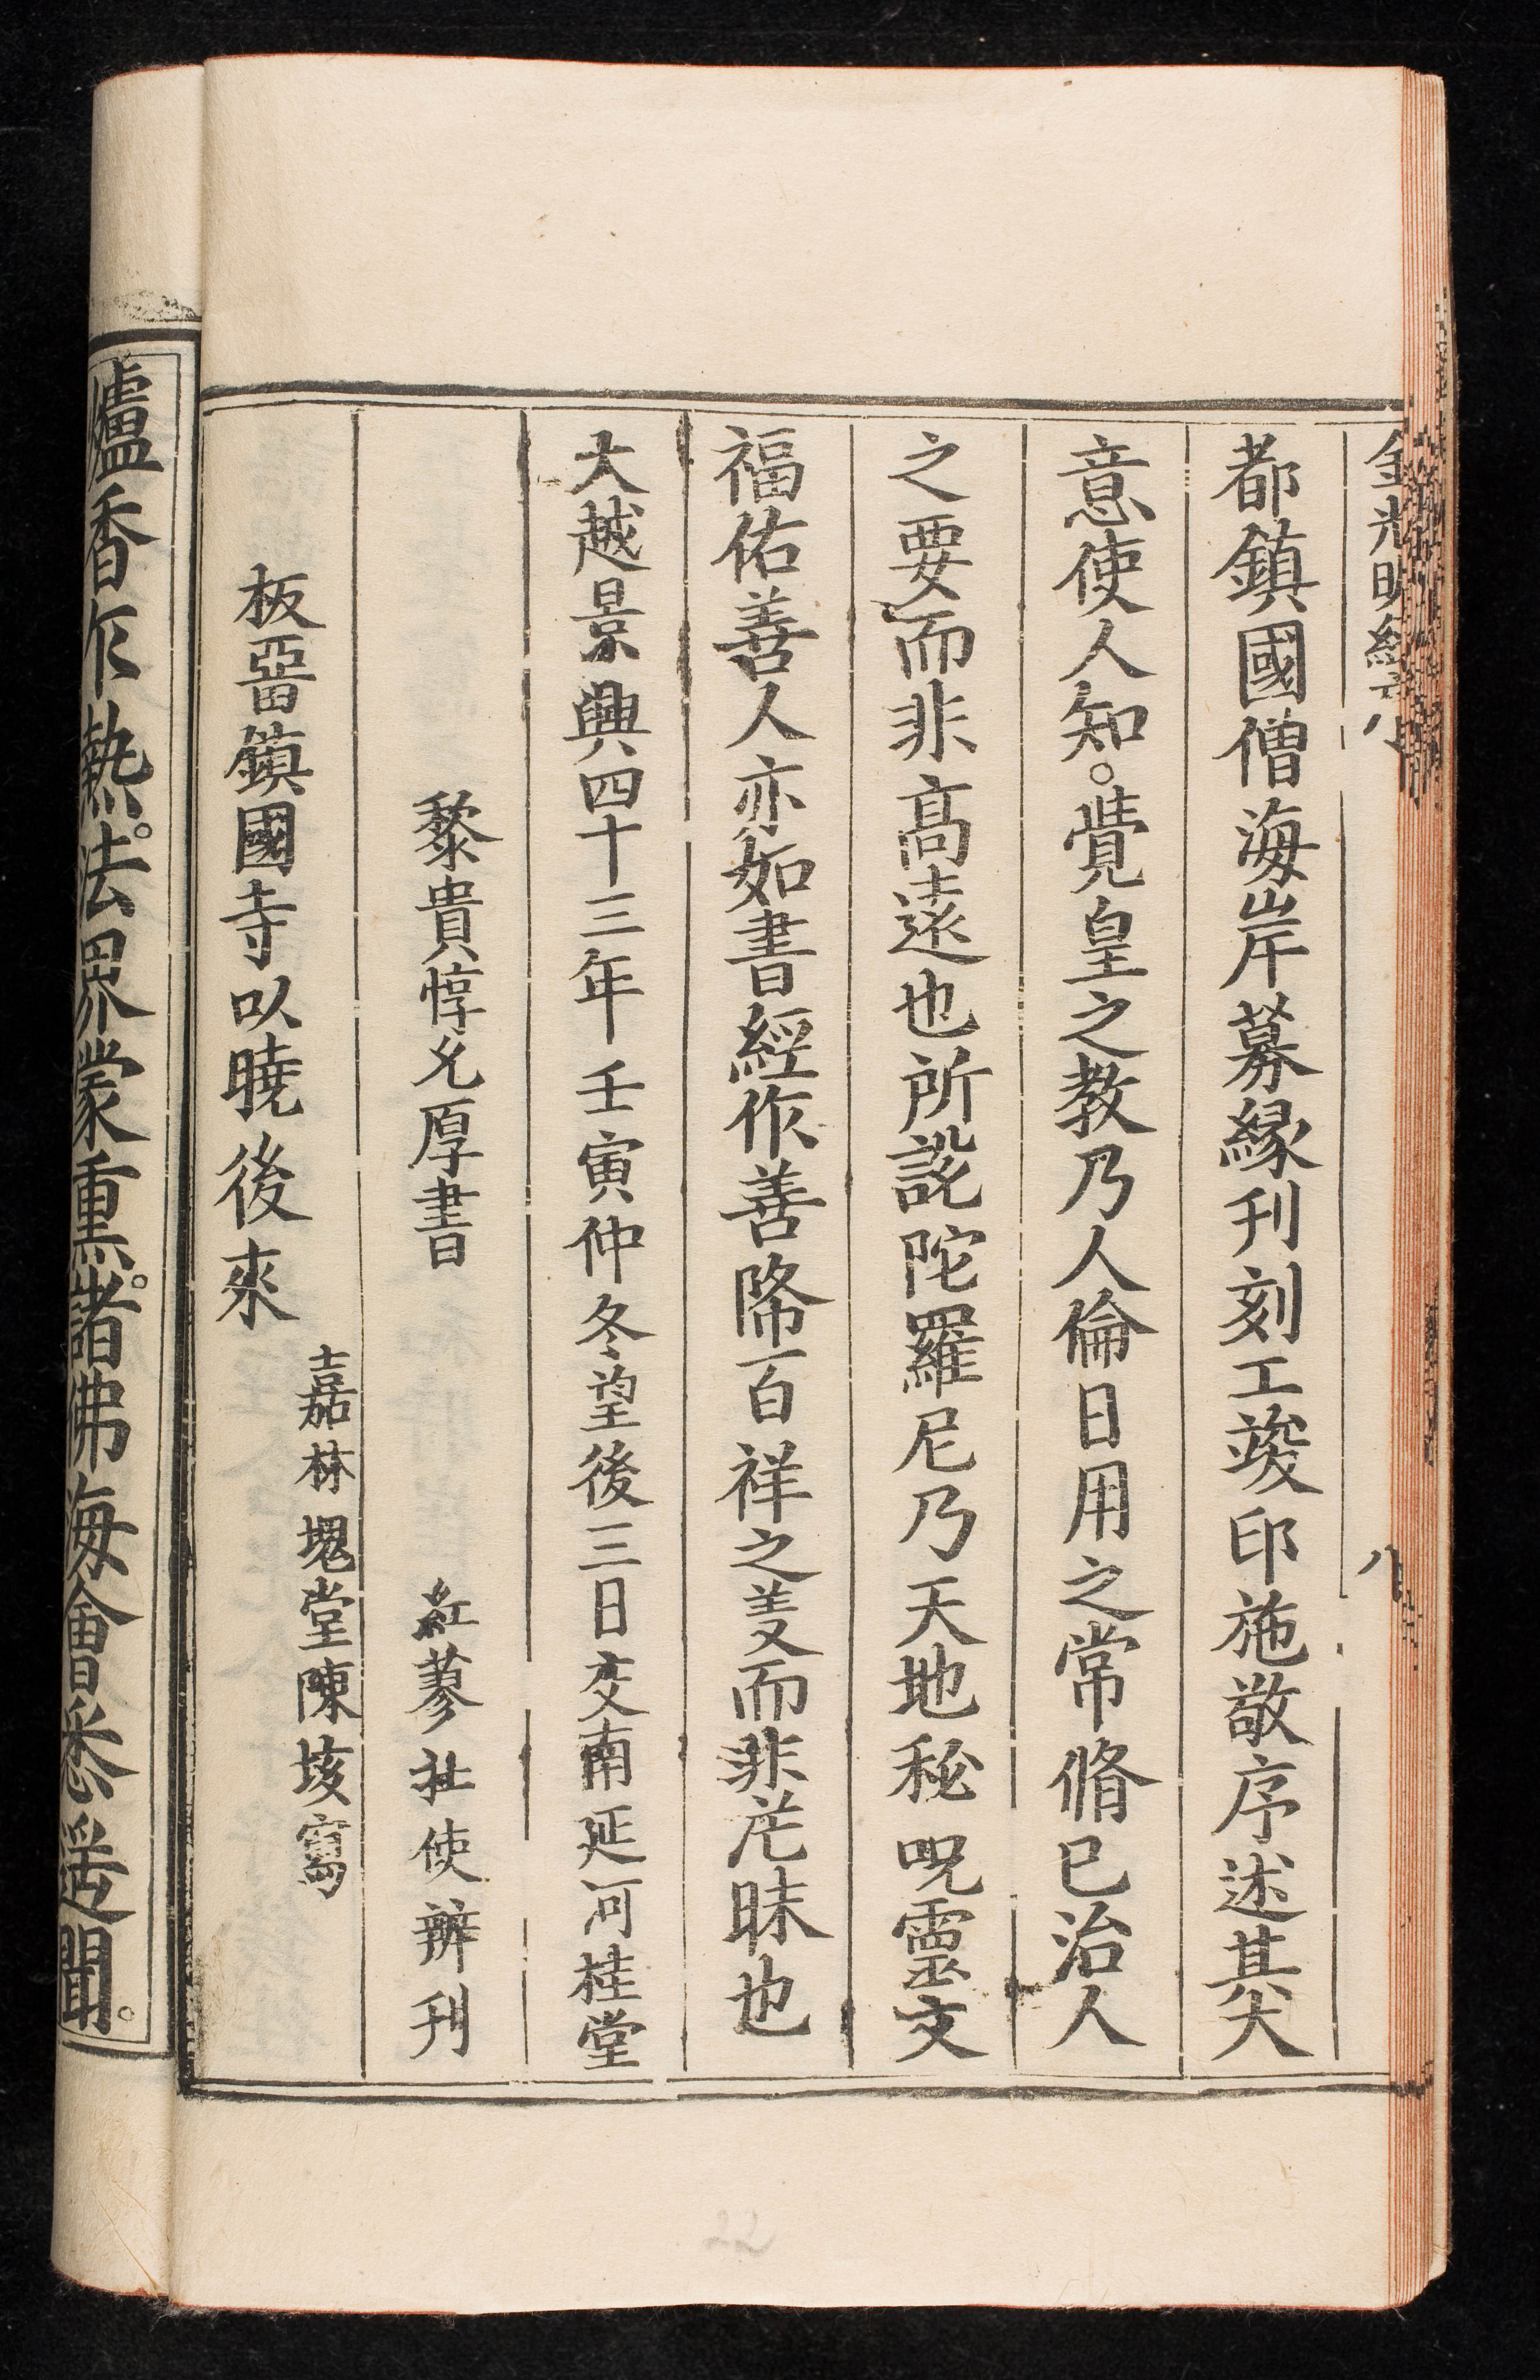 金光明經序
八
都鎮國僧海岸募緣刊刻工竣印施敬序述其大
意使人知。覺皇之教乃人倫日用之常脩已治人
之要而非髙遠也所説陀羅尼乃天地秘呪靈文
福佑善人亦如書經作善降百祥之義而非茫昧也
大越景興四十三年壬寅仲冬望後三日交南延河桂堂
黎貴惇允厚書
紅蓼社使辦刊
嘉林塊堂陳垓寫
板留鎮國寺以曉後來
爐香乍熱。法界蒙熏。諸佛海會悉遙聞。